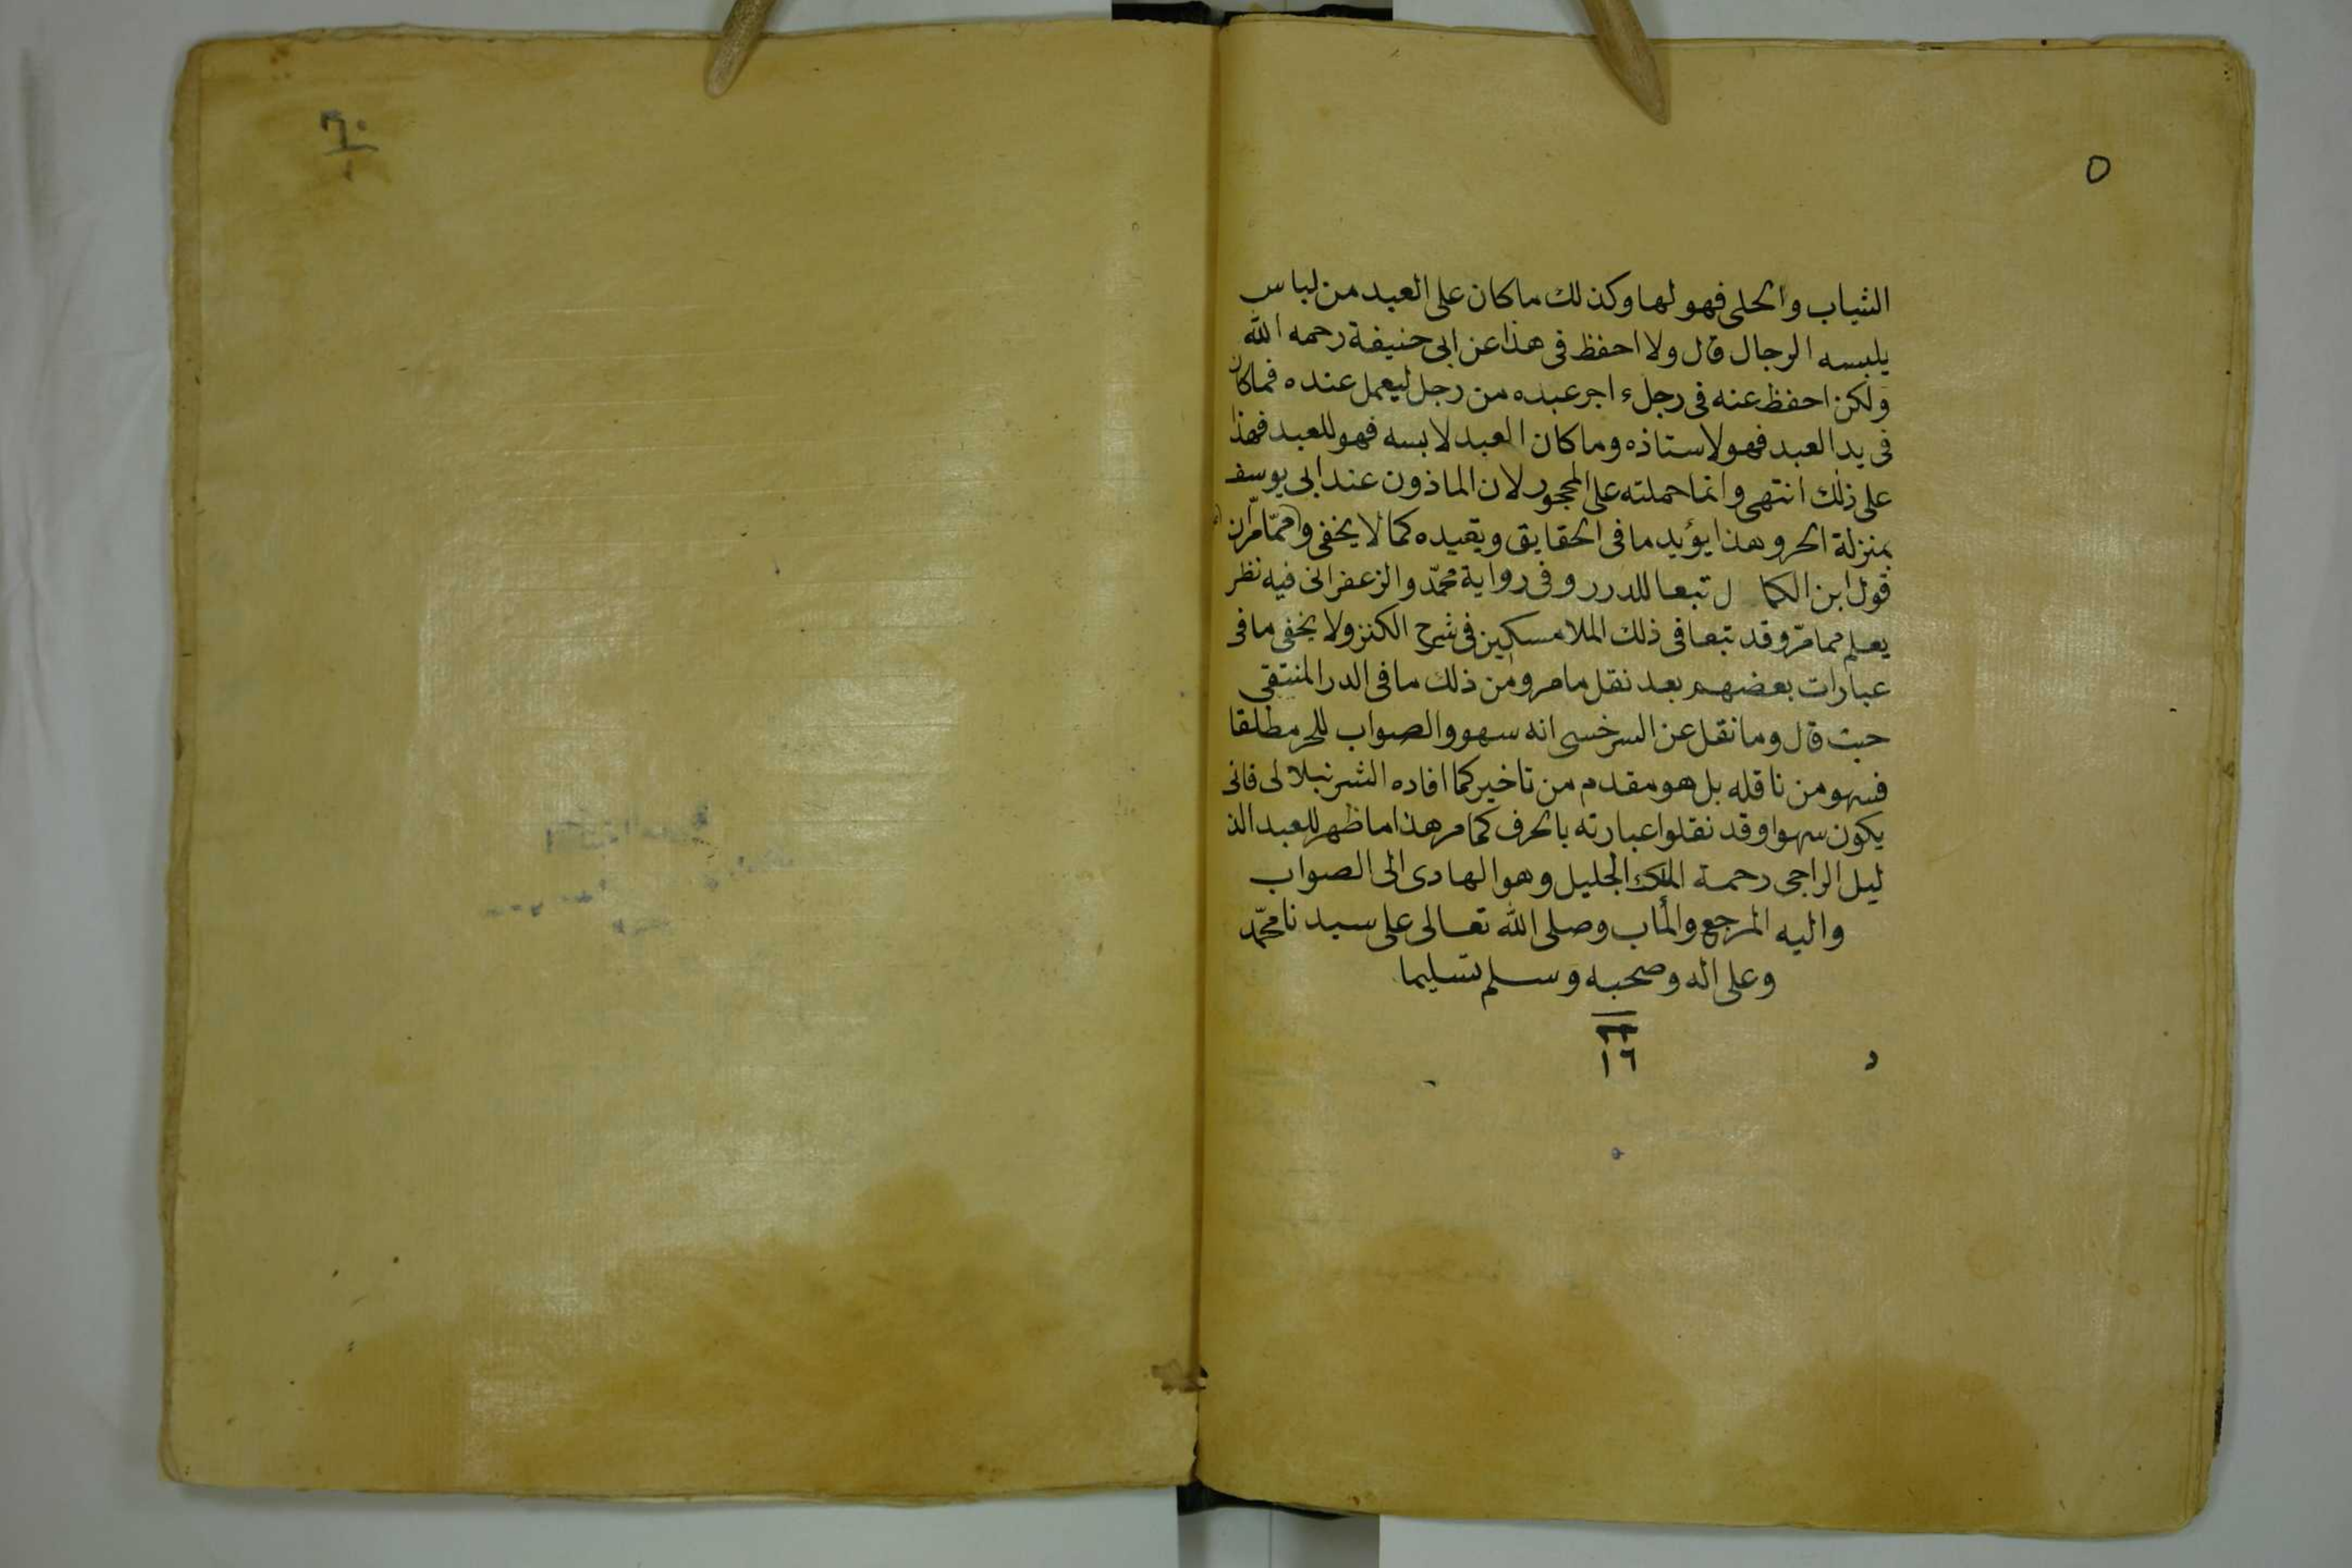 ٥
الثياب والحلى فهو لها وكذلك ما كان على العبد من لباس
يلبسه الرجال قال ولا احفظ فى هذا عن ابى حنيفة رحمه الله
ولكن احفظ عنه فى رجل ءاجر عبده من رجل ليعمل عنده فما كان
فى يد العبد فهو لاستاذه وما كان العبد لابسه فهو للعبد فهذا
على ذلك انتهى وانما حملته على المحجور لان الماذون عند ابى يوسف
بمنزلة الحر وهذا يؤيد ما فى الحقايق ويقيده كما لا يخفى و مما مرّ ان
قول ابن الكمال تبعا للدرر وفى رواية محمّد والزعفرانى فيه نظر
يعلم مما مرّ وقد تبعا فى ذلك الملا مسكين فى شرح الكنز ولا يخفى ما فى
عبارات بعضهم بعد نقل ما مر ومن ذلك ما فى الدر المنتقى
حيث قال وما نقل عن السرخسى انه سهو والصواب للحر مطلقا
فسهو من ناقله بل هو مقدم من تاخير كما افاده الشرنبلالى فانى
يكون سهوا وقد نقلوا عبارته بالحرف كما مر هذا ما ظهر للعبد الذ
ليل الراجى رحمة الملك الجليل وهو الهادى الى الصواب
واليه المرجع والمأب وصلى الله تعالى على سيدنا محمّد
وعلى اله وصحبه وسلم تسليما
٦٠
١